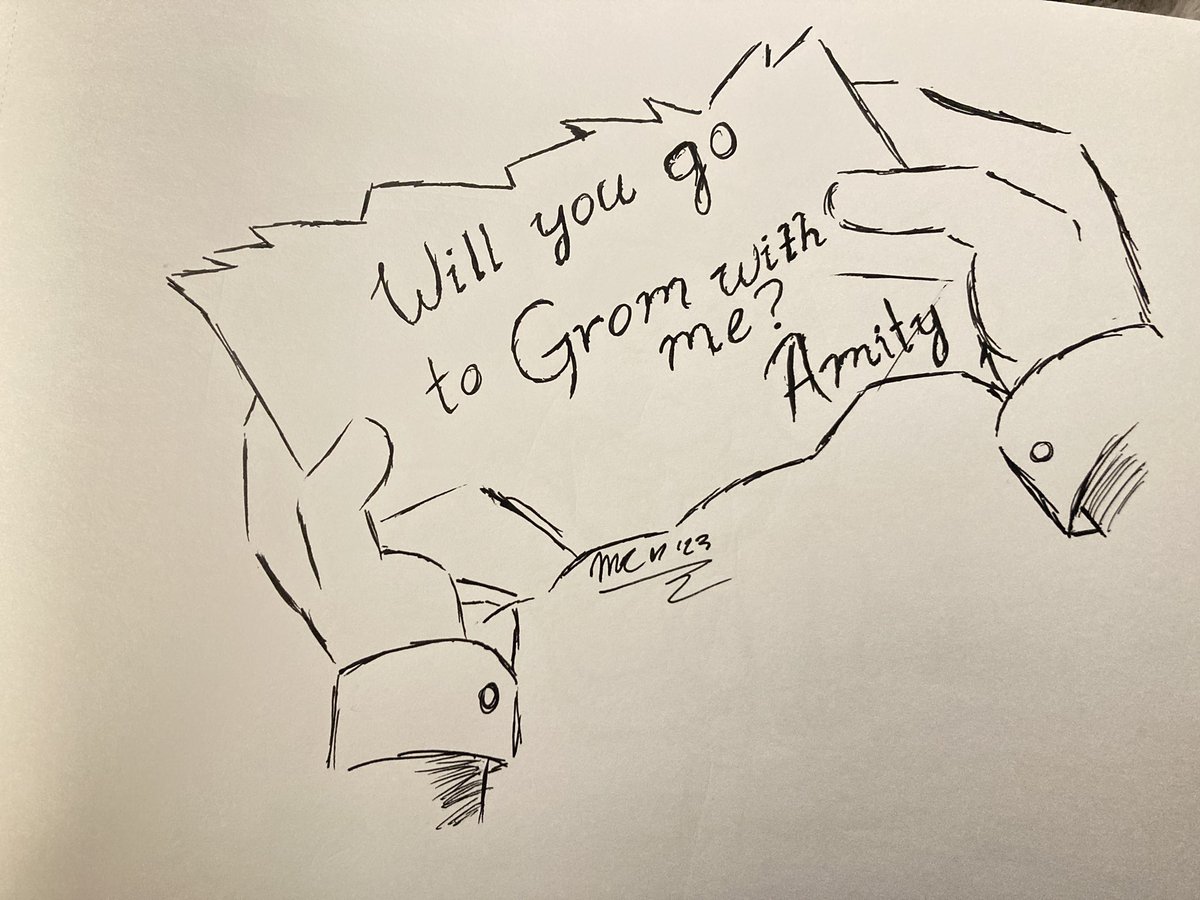 Will you go
to Grom with
me?
Amity